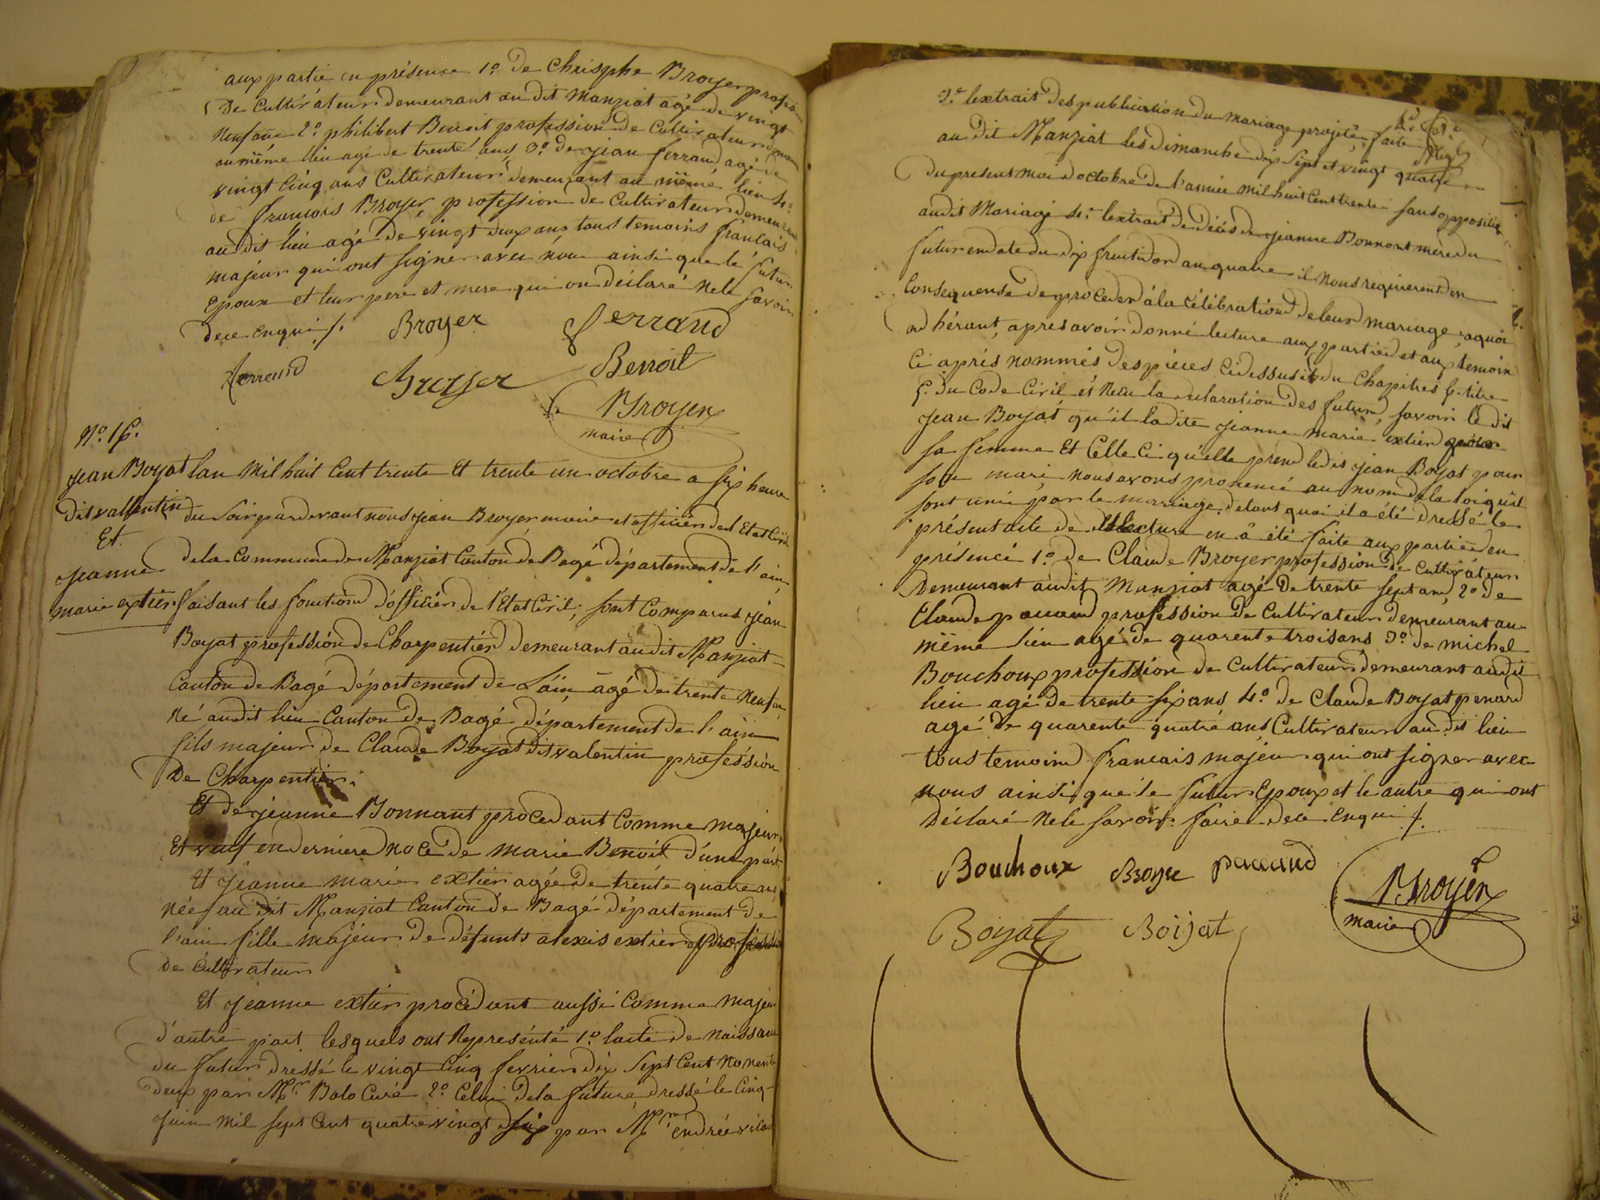 aux partie en présence 1° de Chrisphe Broyer profession
De Cultivateur demeurant au dit Manziat agé de vingt
Neuf ans 2° philibert Benoit profession de Cultivateur
au même lieu agé de trente ans 3° de jean ferrand agé de
vingt Cinq ans Cultivateur demeurant au même lieu 4°
de françois Broyer profession de Cultivateur demeurant
au dit lieu agé de vingt deux ans tous temoins français
majeur qui ont signer avec nous ainsi que le futur
Epoux et leur pere et mere qui on déclaré ne le savoir
de ce enqui /. Broyer ferrand
ferrand Broyer Benoit
Broyer
maire
N°. 16.
Jean Boyat
dit vallentin
Et
jeanne
marie extier
Lan Mil huit Cent trente Et trente un octobre a six heure
du soir pardevant nous jean Broyer maire et officier de l'Etat Civil
de la Commune de Manziat Canton de Bagé département de l'ain
faisant les fonction d'officier de l'Etat Civil, sont Comparus jean
Boyat profession de Charpentier demeurant au dit Manziat
Canton de Bagé département de L'ain agé de trente neuf ans
Né au dit lieu Canton de Bagé département de l'ain
fils majeur de Claude Boyat dit valentin profession
De Charpentier.
Et de jeanne Bonnant procedant Comme majeur
Et veuf en derniere noce de marie Benoit d'une part
Et jeanne marie extier agée de trente quatre ans
née au dit Manziat Canton de Bagé département de
l'ain fille majeur de défunts alexis extier profession
de Cultivateur
Et jeanne extier procédant aussi Comme majeur
d'autre part lesquels ont Représenté 1° lacte de Naissance
du futur dressé le vingt Cinq fevrier dix Sept Cent Nonente
deux par Mr. Bolo Curé 2° Celui de la future dressé le Cinq
Juin Mil sept Cent quatre vingt six par Mr.
3° lextrait des publication du mariage projeté, faite
au dit Manziat les dimanche dix Sept et vingt quatre
du present mois d'octobre de l'année Mil huit Cent trente sans opposition
audit Mariage 4° lextrait de décés de jeanne Bonnant mere du
futur en date du dix fruitidor an quatre il Nous requierent en
Consequense de proceder à la Célébration de leur mariage a quoi
adhérant, apres avoir donné lecture aux partie et aux temoin
Ci aprés nommés des piéces Ci dessus et du Chapitres 6 titre
5. du Code Civil et Recu la declaration des futur, savoir le dit
Jean Boyat qu'il la dite jeanne marie extier pour
sa femme Et Celle Ci qu'elle prend le dit jean Boyat pour
son mari Nous avons prononcé au nom de la loi qu'il
sont unis par le marriage de tout quoi il a été dressé le
présent acte de lecture en a été faite aux partie en
présence 1° de Claude Broyer profession de Cultivateur
Demeurant audit Manziat agé De trente sept ans 2° de
Claude pacaud profession de Cultivateur demeurant au
même lieu agé de quarente trois ans 3° de michel
Bouchoux profession de Cultivateur demeurant au dit
lieu agé de trente six ans 4° de Claude Boyat penard
agé de quarente quatre ans Cultivateur au dit lieu
tous temoins francais majeur qui ont signer avec
nous ainsi que le futur Epoux et le autre qui ont
Déclaré Ne le savoir faire de ce enqui /.
Bouchoux Broyer paccaud
Broyer
maire
Boyat Boijat